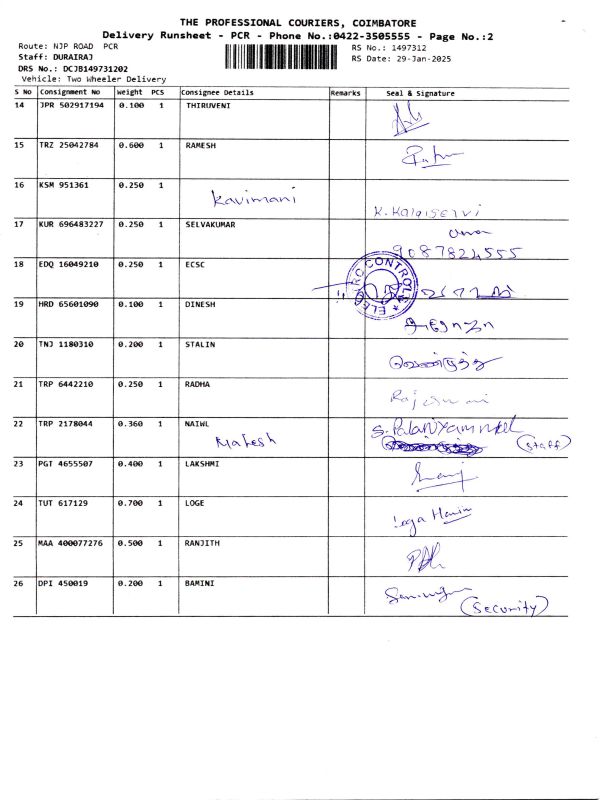 THE PROFESSIONAL COURIERS, COIMBATORE
Delivery Runsheet - PCR - Phone No.:0422-3505555 - Page No.:2
Route: NJP ROAD PCR
RS No.: 1497312
Staff: DURAIRAJ
RS Date: 29-Jan-2025
DRS No.: DCJB149731202
Vehicle: Two Wheeler Delivery
S No Consignment No Weight PCS Consignee Details Remarks Seal & Signature
14 JPR 502917194 0.100 1 THIRUVENI
15 TRZ 25042784 0.600 1 RAMESH
16 KSM 951361 0.250 1
Kavimani
K. Kalaiselvi
17 KUR 696483227 0.250 1 SELVAKUMAR
9087824555
18 EDQ 16049210 0.250 1 ECSC
19 HRD 65601090 0.100 1 DINESH
20 TNJ 1180310 0.200 1 STALIN
21 TRP 6442210 0.250 1 RADHA
22 TRP 2178044 0.360 1 NAIWL
Mahesh
(Staff)
23 PGT 4655507 0.400 1 LAKSHMI
24 TUT 617129 0.700 1 LOGE
25 MAA 400077276 0.500 1 RANJITH
26 DPI 450019 0.200 1 BAMINI
(Security)